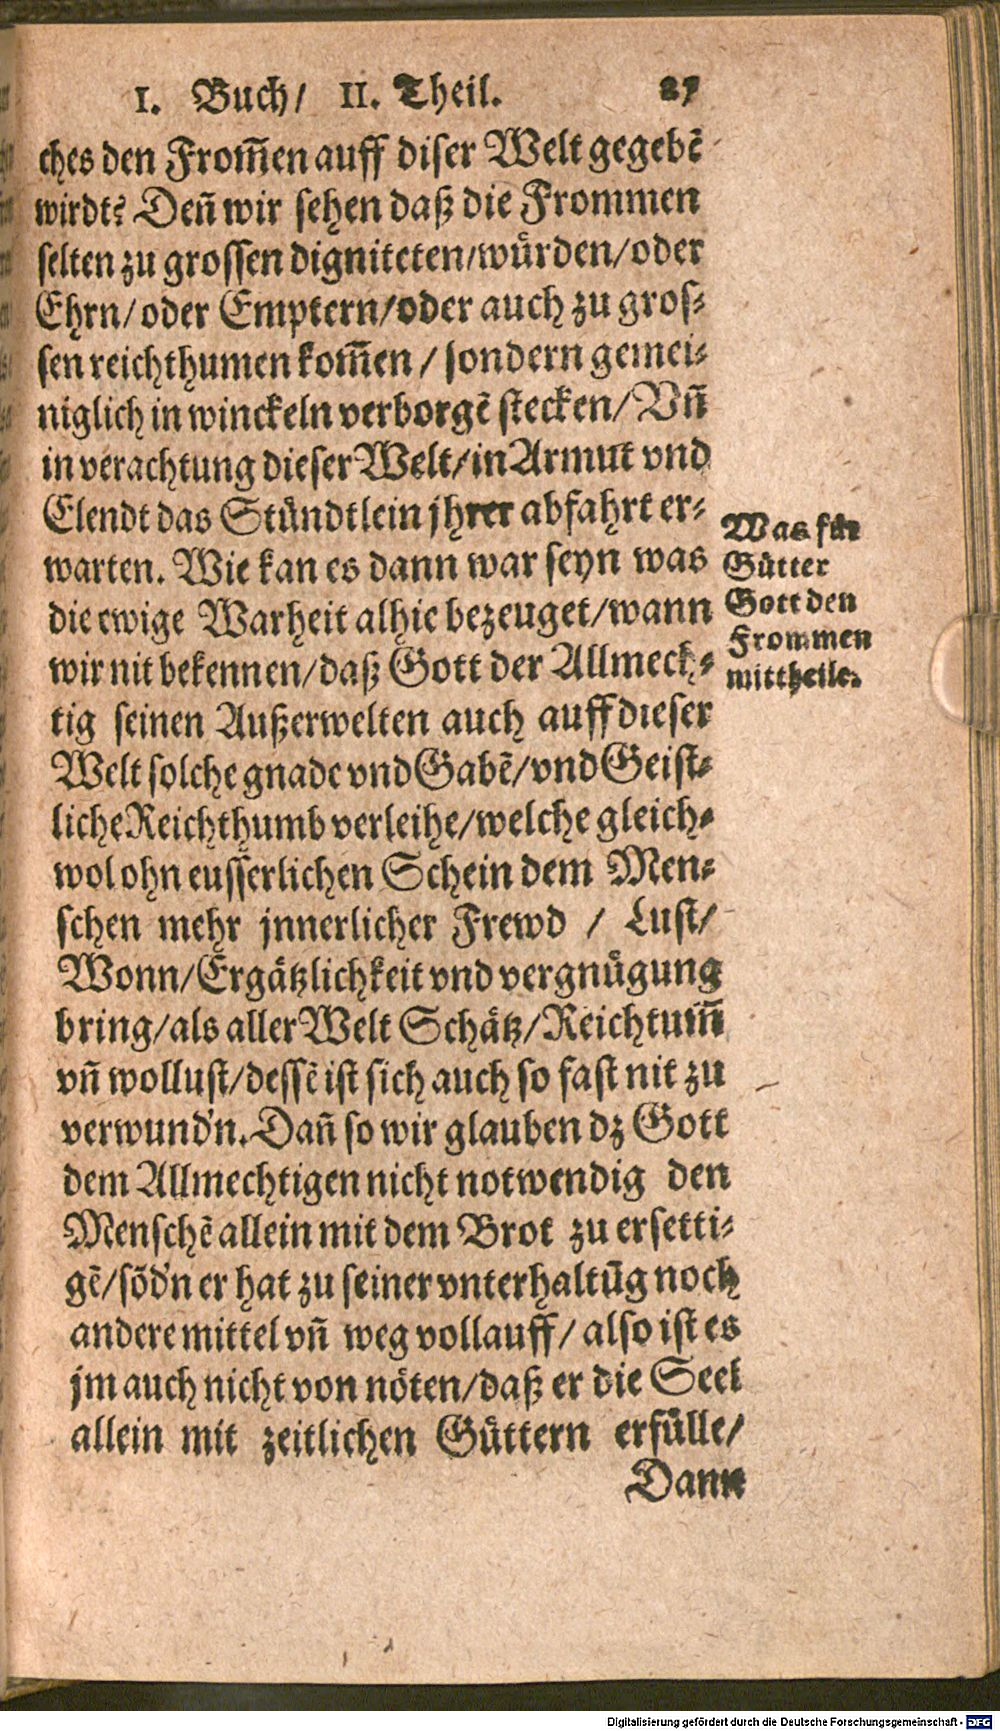 I. Buch/ II. Theil. 27
ches den From̃en auff diser Welt gegebẽ
wirdt? Den̄ wir sehen daß die Frommen
selten zu grossen digniteten/würden/oder
Ehrn/oder Emptern/oder auch zu gros-
sen reichthumen kom̃en / sondern gemei-
niglich in winckeln verborgẽ stecken/ Vn̄
in verachtung dieser Welt/in Armut vnd
Elendt das Stündtlein jhrer abfahrt er-
warten. Wie kan es dann war seyn was
die ewige Warheit alhie bezeuget/wann
wir nit bekennen/daß Gott der Allmech-
tig seinen Außerwelten auch auff dieser
Welt solche gnade vnd Gabẽ/vnd Geist-
liche Reichthumb verleihe/welche gleich-
wol ohn eusserlichen Schein dem Men-
schen mehr jnnerlicher Frewd / Lust/
Wonn/Ergätzlichkeit vnd vergnügung
bring/als aller Welt Schätz/Reichtum̃
vn̄ wollust/dessẽ ist sich auch so fast nit zu
verwund'n. Dan̄ so wir glauben dz Gott
dem Allmechtigen nicht notwendig den
Menschẽ allein mit dem Brot zu ersetti-
gẽ/sõd'n er hat zu seiner vnterhaltũg noch
andere mittel vn̄ weg vollauff/ also ist es
jm auch nicht von nöten/daß er die Seel
allein mit zeitlichen Güttern erfülle/
Dann
Was für
Gütter
Gott den
Frommen
mittheile.
Digitalisierung gefördert durch die Deutsche Forschungsgemeinschaft - DFG